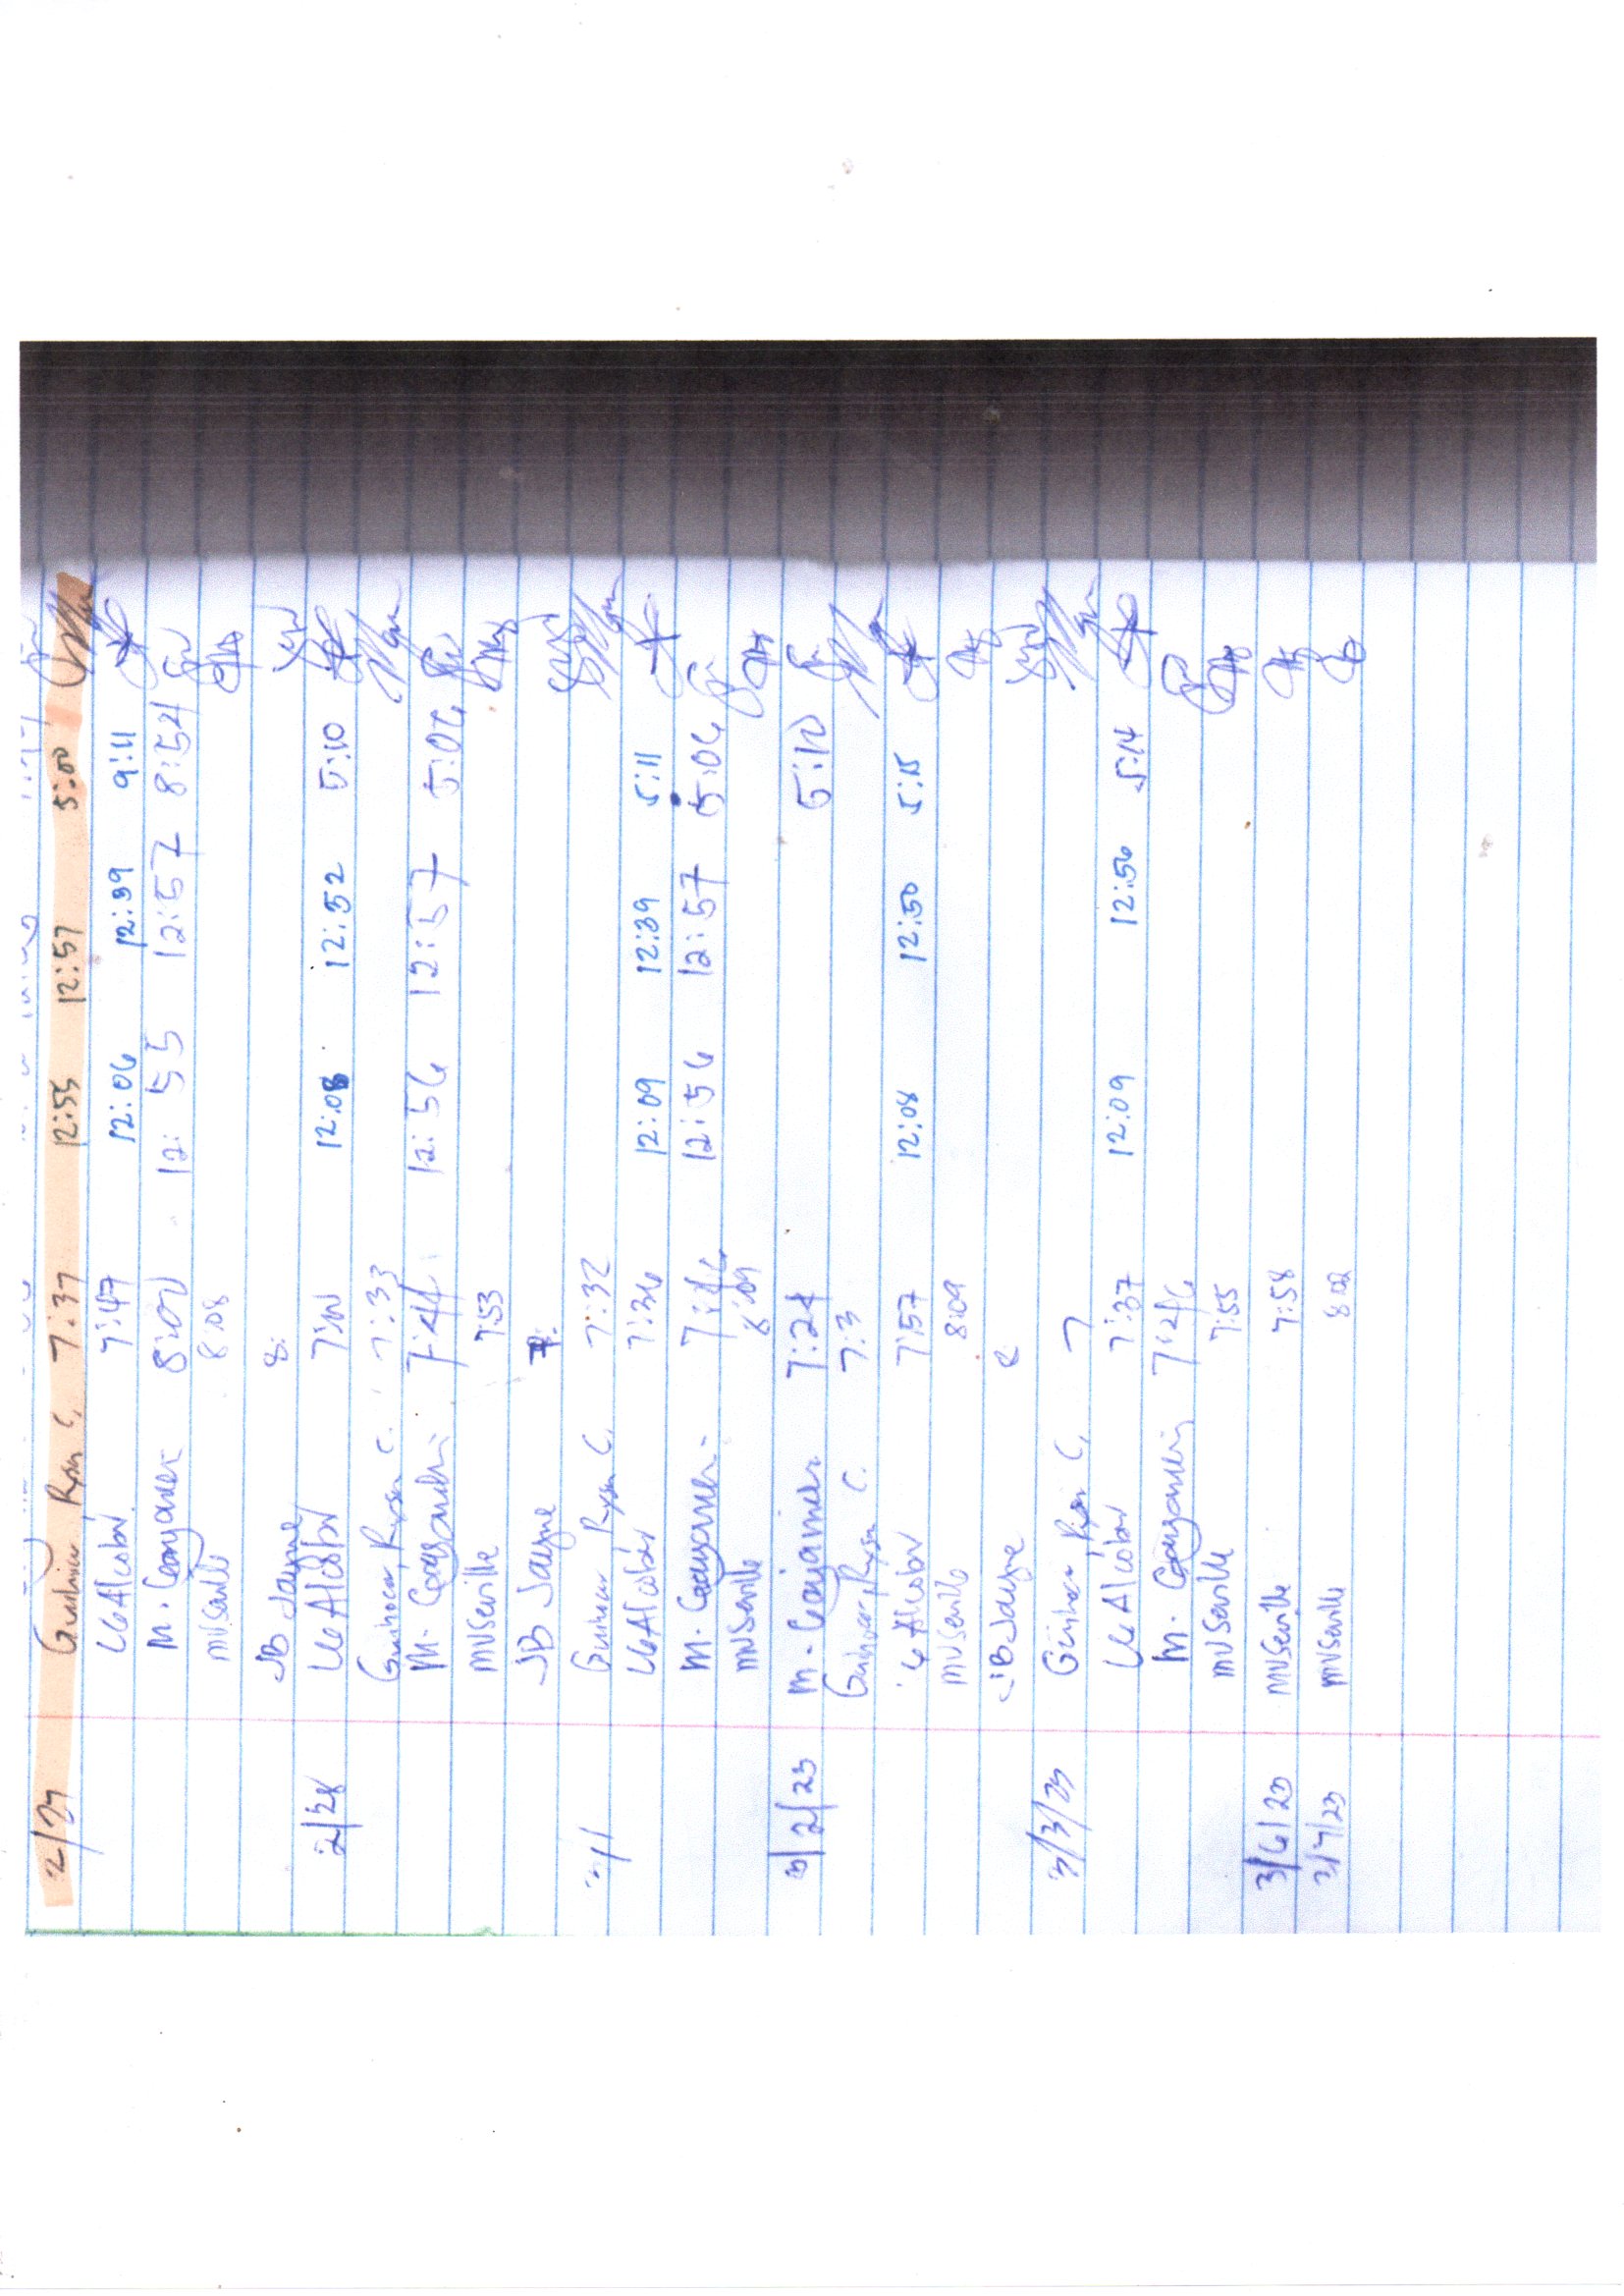 2/27 Guinhoca Ryan C. 7:37 12:55 12:57 5:00
LG Alcober 7:47 12:06 12:39 9:11
M. 8:00 12:55 12:57 8:54
MV Seville 8:08
JB Jayne 8:
2/28 LG Alcober 12:08 12:52 5:10
Guinhoca, Ryan C. 7:33
M. 7:44 12:56 12:57 5:06
MV Seville 7:53
JB Jayne
3/1 Guinhoca Ryan C. 7:32
LG Alcober 7:36 12:09 12:39 5:11
M. 7:46 12:56 12:57 5:06
MV Seville 8:09
3/2/23 M. 7:24 5:10
Guinhoca, Ryan C. 7:3
LG Alcober 7:57 12:08 12:50 5:15
MV Seville 8:09
JB Jayne 8
3/3/23 Guinhoca, Ryan C. 7
LG Alcober 7:37 12:09 12:56 5:14
M. 7:26
MV Seville 7:55
3/6/23 MV Seville 7:58
3/7/23 MV Seville 8:02